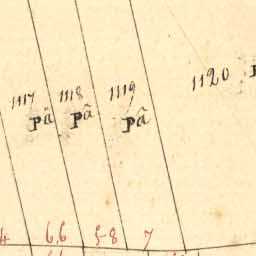 1117 1118 1119 1120
Pâ Pâ Pâ
66 58 7